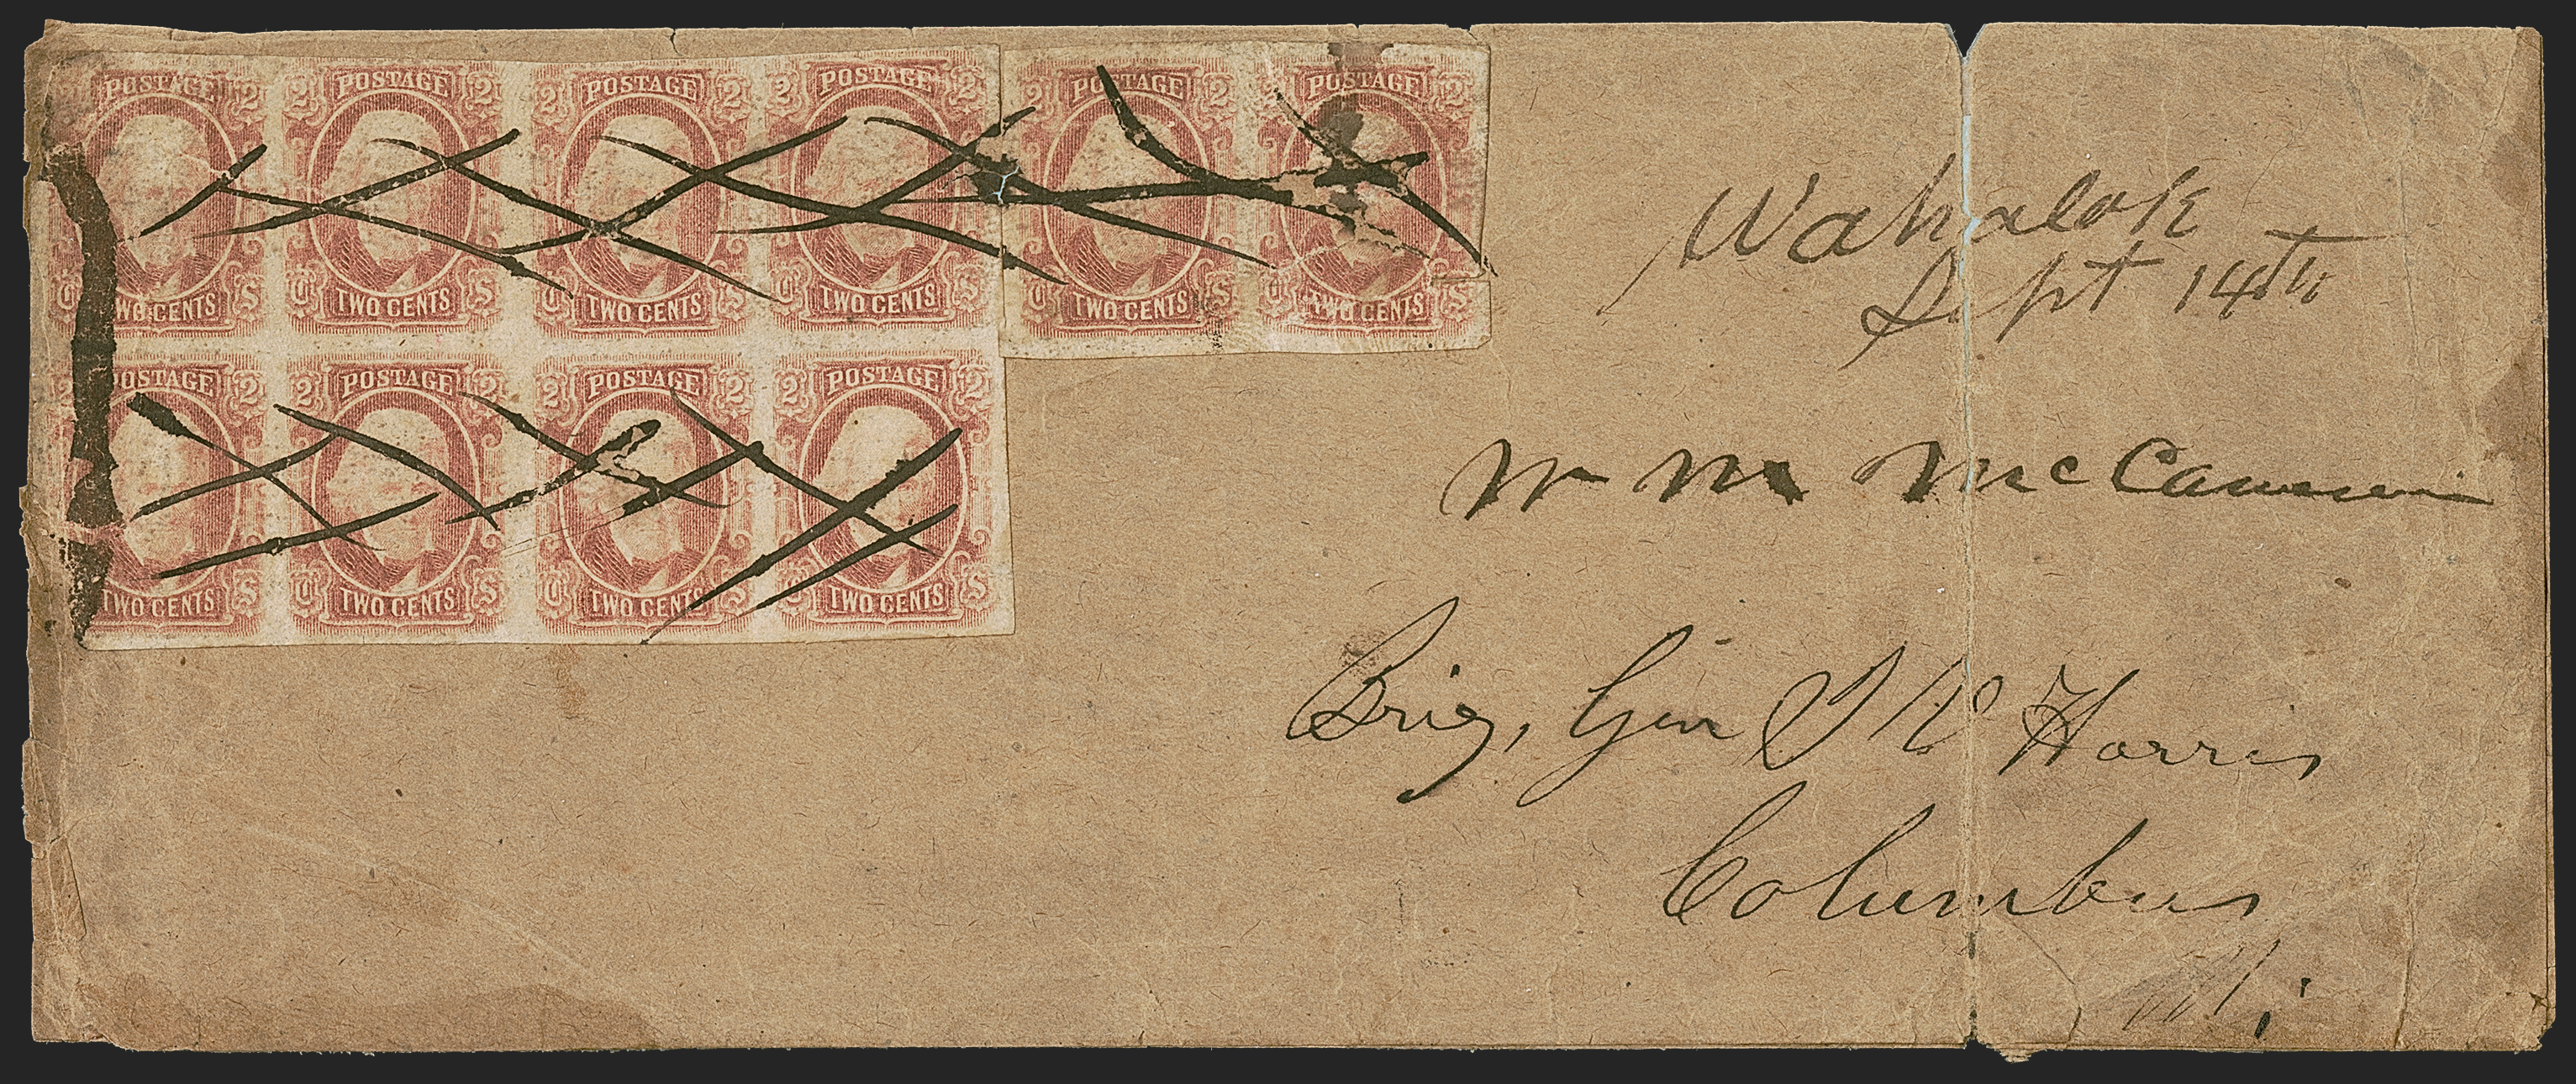 2 POSTAGE 2 2 POSTAGE 2 2 POSTAGE 2 2 POSTAGE 2 2 POSTAGE 2 2 POSTAGE 2
C TWO CENTS S C TWO CENTS S C TWO CENTS S C TWO CENTS S C TWO CENTS S C TWO CENTS S
2 POSTAGE 2 2 POSTAGE 2 2 POSTAGE 2 2 POSTAGE 2
TWO CENTS S C TWO CENTS S C TWO CENTS S C TWO CENTS S
Wahalok
Sept 14th
Wm McCammon
Brig, Gen Harris
Columbus
Mi